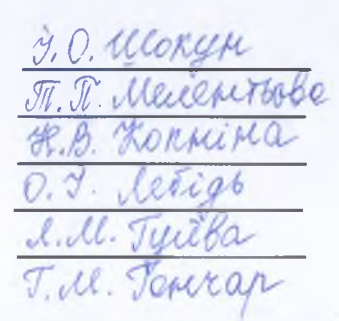 І. О. Шокун
Т. П. Мелентьова
Н. В. Копніна
О. І. Лебідь
Л. М. Гулєва
Г. М. Гончар